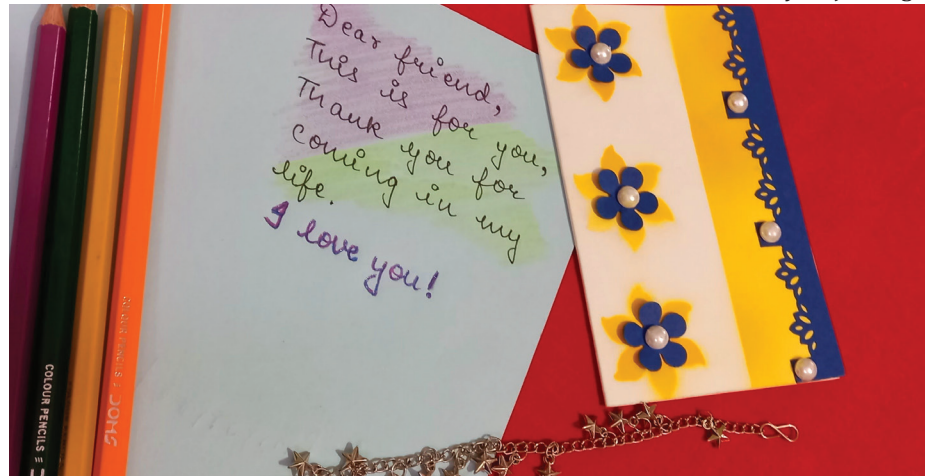 Dear friend,
This is for you,
Thank you for
coming in my
life.
I love you!
COLOUR PENCILS
COLOUR PENCILS
DOMS